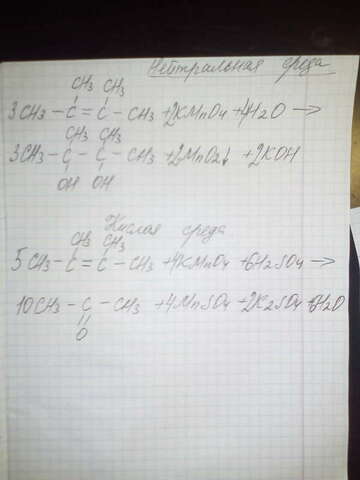 Нейтральная среда
CH3 CH3
3CH3-C=C-CH3 +2KMnO4 +4H2O →
CH3 CH3
3CH3-C-C-CH3 +2MnO2↓ +2KOH
OH OH
Кислая среда
CH3 CH3
5CH3-C=C-CH3 +4KMnO4 +6H2SO4 →
10CH3-C-CH3 +4MnSO4 +2K2SO4 +6H2O
O